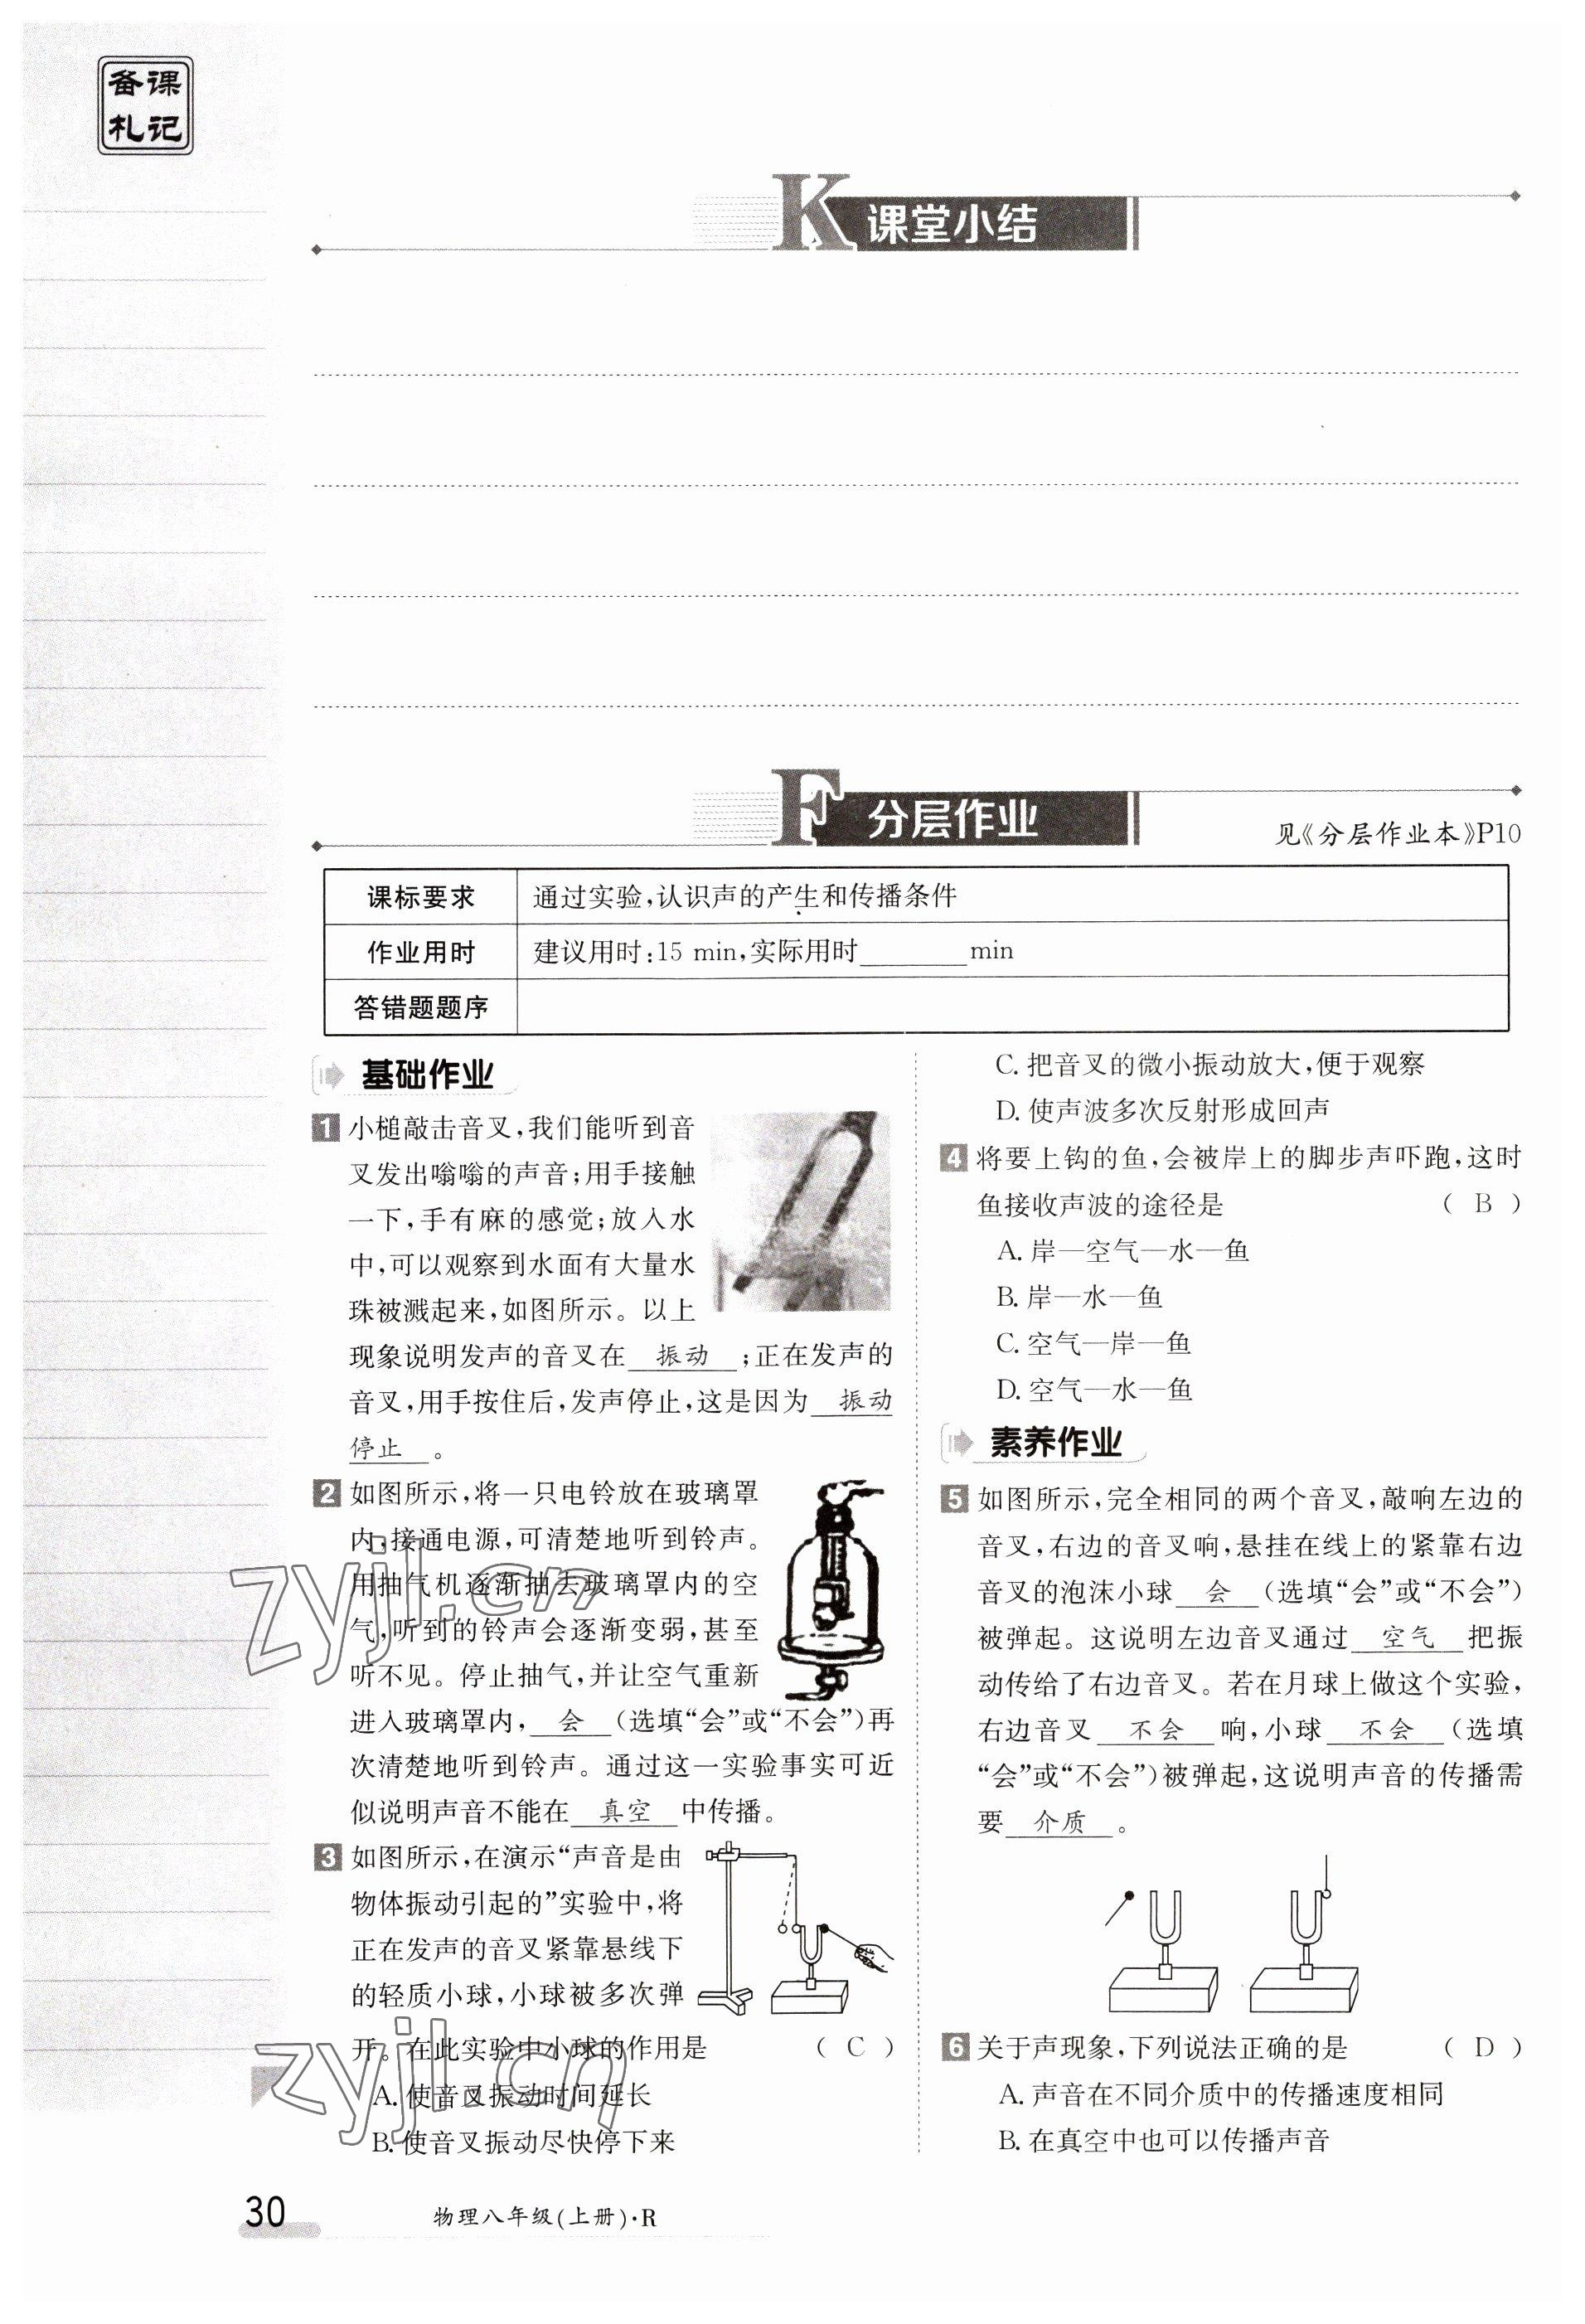 备课
札记
K 课堂小结
F 分层作业
见《分层作业本》P10
课标要求 通过实验,认识声的产生和传播条件
作业用时 建议用时:15 min,实际用时________min
答错题题序
基础作业
1 小槌敲击音叉,我们能听到音
叉发出嗡嗡的声音;用手接触
一下,手有麻的感觉;放入水
中,可以观察到水面有大量水
珠被溅起来,如图所示。以上
现象说明发声的音叉在 振动 ;正在发声的
音叉,用手按住后,发声停止,这是因为 振动
停止 。
2 如图所示,将一只电铃放在玻璃罩
内,接通电源,可清楚地听到铃声。
用抽气机逐渐抽去玻璃罩内的空
气,听到的铃声会逐渐变弱,甚至
听不见。停止抽气,并让空气重新
进入玻璃罩内, 会 (选填“会”或“不会”)再
次清楚地听到铃声。通过这一实验事实可近
似说明声音不能在 真空 中传播。
3 如图所示,在演示“声音是由
物体振动引起的”实验中,将
正在发声的音叉紧靠悬线下
的轻质小球,小球被多次弹
开。在此实验中小球的作用是 ( C )
A. 使音叉振动时间延长
B. 使音叉振动尽快停下来
C. 把音叉的微小振动放大,便于观察
D. 使声波多次反射形成回声
4 将要上钩的鱼,会被岸上的脚步声吓跑,这时
鱼接收声波的途径是 ( B )
A. 岸—空气—水—鱼
B. 岸—水—鱼
C. 空气—岸—鱼
D. 空气—水—鱼
素养作业
5 如图所示,完全相同的两个音叉,敲响左边的
音叉,右边的音叉响,悬挂在线上的紧靠右边
音叉的泡沫小球 会 (选填“会”或“不会”)
被弹起。这说明左边音叉通过 空气 把振
动传给了右边音叉。若在月球上做这个实验,
右边音叉 不会 响,小球 不会 (选填
“会”或“不会”)被弹起,这说明声音的传播需
要 介质 。
6 关于声现象,下列说法正确的是 ( D )
A. 声音在不同介质中的传播速度相同
B. 在真空中也可以传播声音
zyjl.cn
zyjl.cn
30
物理八年级(上册)·R